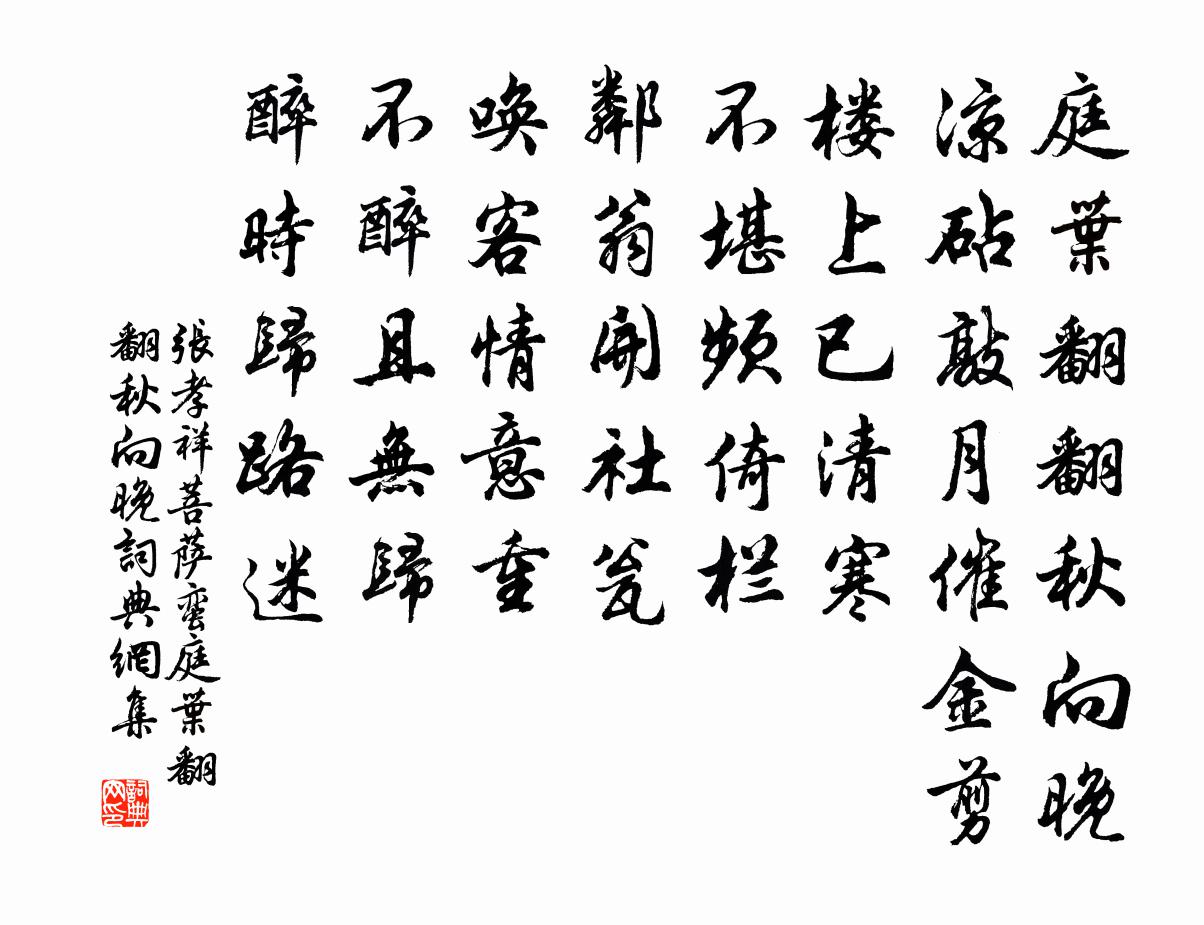 庭葉翻翻秋向晚
涼砧敲月催金剪
楼上已清寒
不堪頻倚栏
鄰翁開社瓮
喚客情意重
不醉且無歸
醉時歸路迷
張孝祥菩萨蛮庭葉翻
翻秋向晚詞典網集
詞典网印